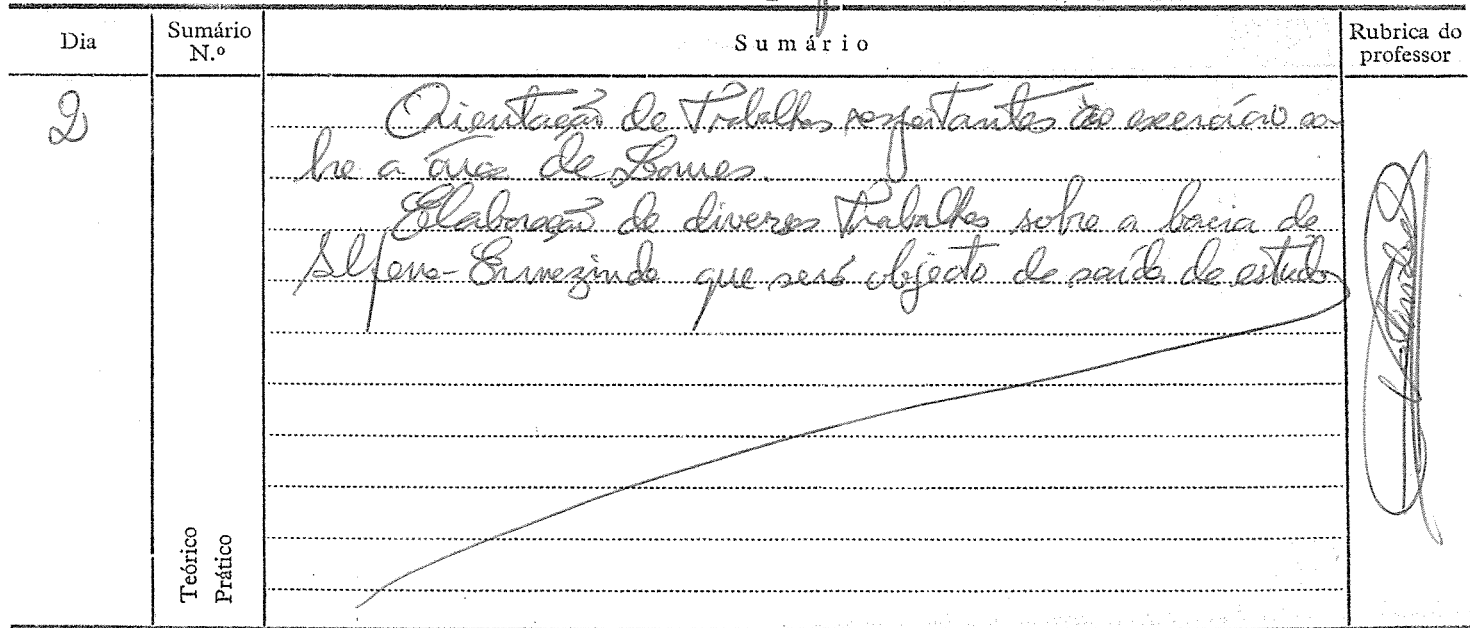 Dia
Sumário N.º
Sumário
Rubrica do professor
2
Orientação de Trabalhos respeitantes ao exercício so
bre a área de
Elaboração de diversos trabalhos sobre a bacia de
Alfena-Ermezinde que será objecto de saída de estudo
Teórico
Prático